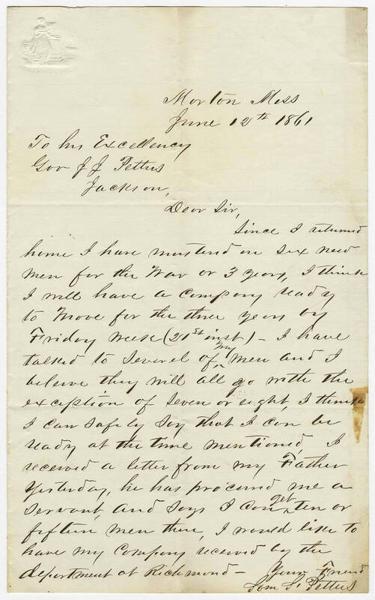 Morton Miss
June 12th 1861
To his Excellency
Gov J J Pettus
Jackson,
Dear Sir,
Since I returned
home I have mustered on six new
men for the War or 3 years, I think
I will have a company ready
to move for the three years by
Friday week (21st inst) - I have
talked to several of my men and I
believe they will all go with the
exception of seven or eight, I think
I can safely say that I can be
ready at the time mentioned, I
received a letter from my Father
yesterday, he has procured me a
servant, and says I can get ten or
fifteen men there, I would like to
have my company received by the
department at Richmond - Your Friend
Pettus